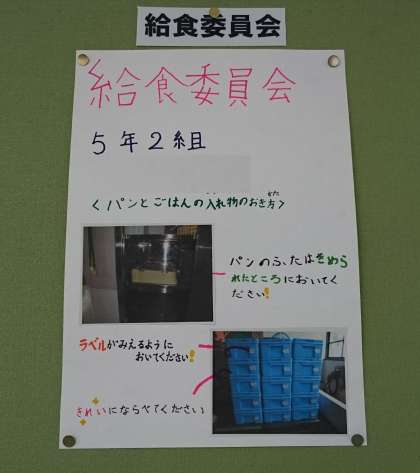 給食委員会
給食委員会
5年2組
かた
<パンとごはんの入れ物のおき方>
パンのふたはきめら
れたところにおいてく
ださい!
ラベルがみえるように
おいてください!
きれいにならべてください